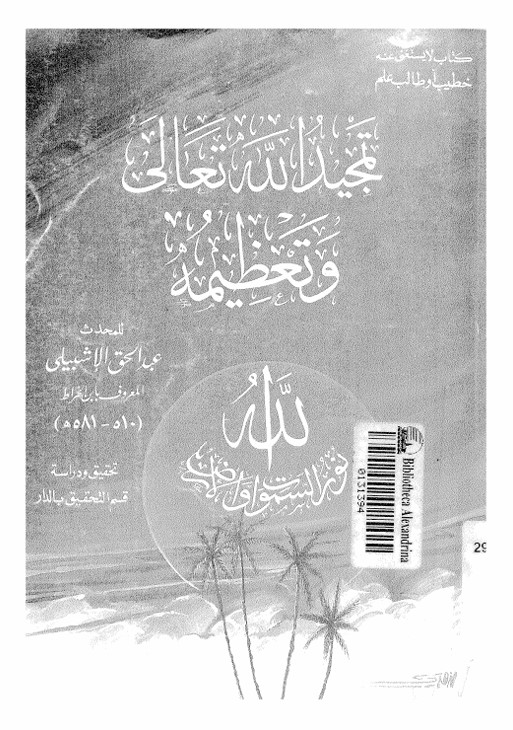 كتاب لا يستغنى عنه
خطيب أو طالب علم
تَمْجِيدُ اللهِ تَعَالَى
وَتَعْظِيمُهُ
للمحدث
عبد الحق الإشبيلى
المعروف بابن الخراط
(٥١٠ - ٥٨١ه)
تحقيق ودراسة
قسم التحقيق بالدار
اللهُ
نور السموات والأرض
Bibliotheca Alexandrina
0131394
29